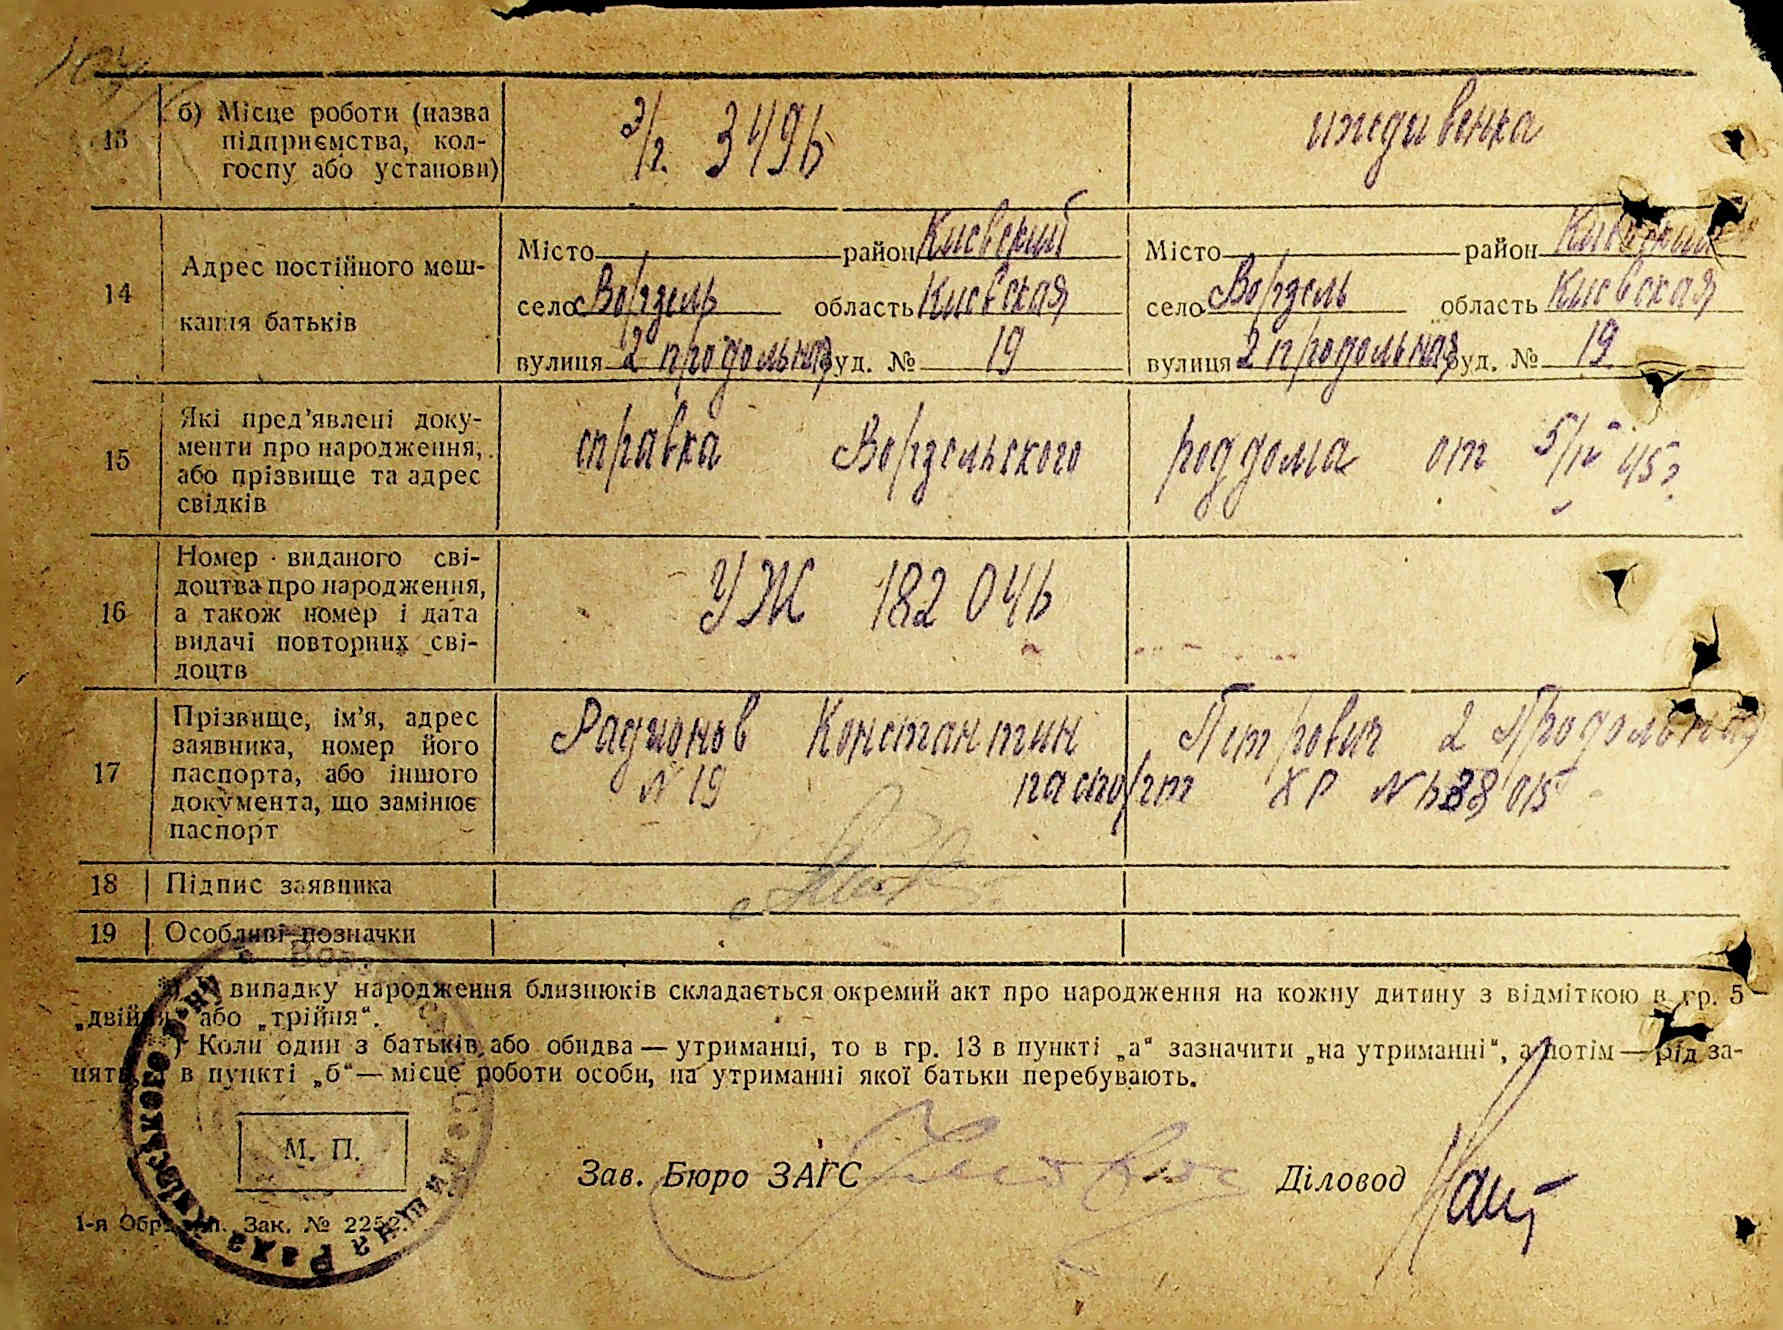 13 б) Місце роботи (назва підприємства, колгоспу або установи)
э/г. 3496
иждивенка
14 Адрес постійного мешкання батьків
Місто район Киевский
село Ворзель область Киевская
вулиця 2 продольная буд. № 19
Місто район Киевский
село Ворзель область Киевская
вулиця 2 продольная буд. № 19
15 Які пред'явлені документи про народження, або прізвище та адрес свідків
справка Ворзельского роддома от 5/IV 45г
16 Номер виданого свідоцтва про народження, а також номер і дата видачі повторних свідоцтв
УЖ 182046
17 Прізвище, ім'я, адрес заявника, номер його паспорта, або іншого документа, що замінює паспорт
Радионов Константин Петрович 2 Продольная
N 19 паспорт ХР N 638015
18 Підпис заявника
19 Особливі позначки
випадку народження близнюків складається окремий акт про народження на кожну дитину з відміткою в гр. 5
„двійня" або „трійня".
Коли один з батьків, або обидва — утриманці, то в гр. 13 в пункті „а" зазначити „на утриманні", а потім — рід за-
няття, в пункті „б" — місце роботи особи, на утриманні якої батьки перебувають.
М. П.
Зав. Бюро ЗАГС
Діловод
Зак. № 2252